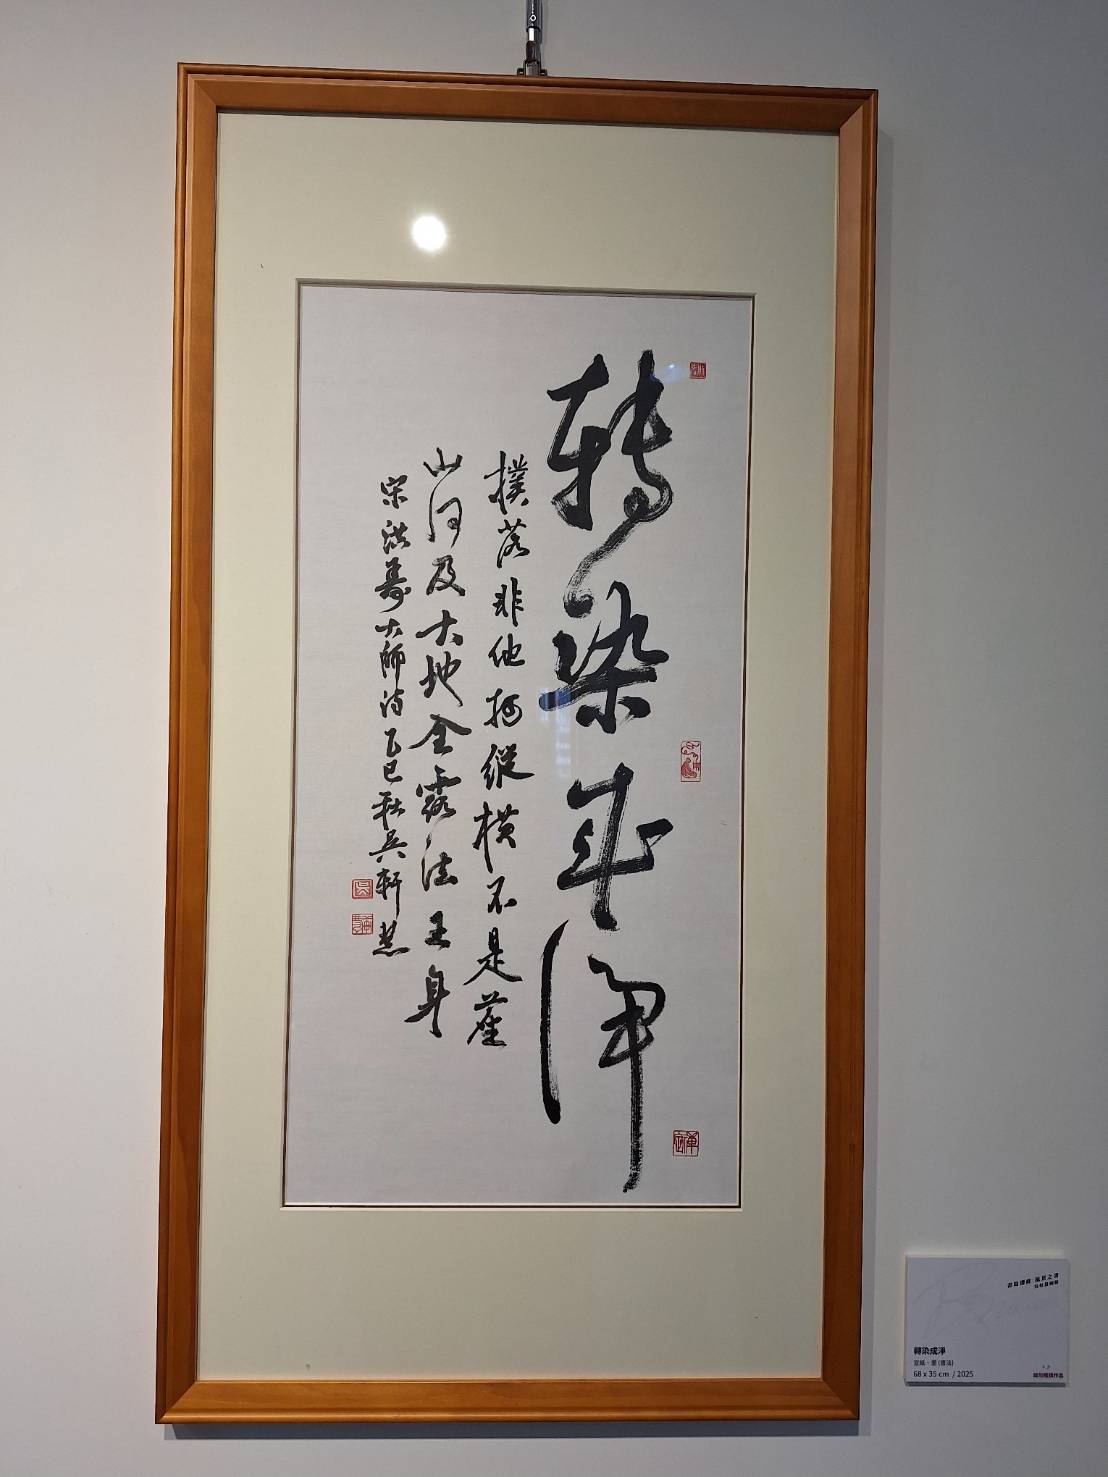 轉染成淨
撲落非他物縱橫不是塵
山河及大地全露法王身
宋洪壽大師詩乙巳秋吳軒慧
轉染成淨
宣紙、墨 (書法)
68 x 35 cm / 2025